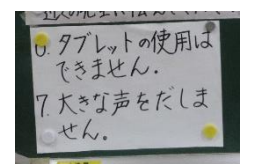 6. タブレットの使用は
できません.
7. 大きな声をだしま
せん。